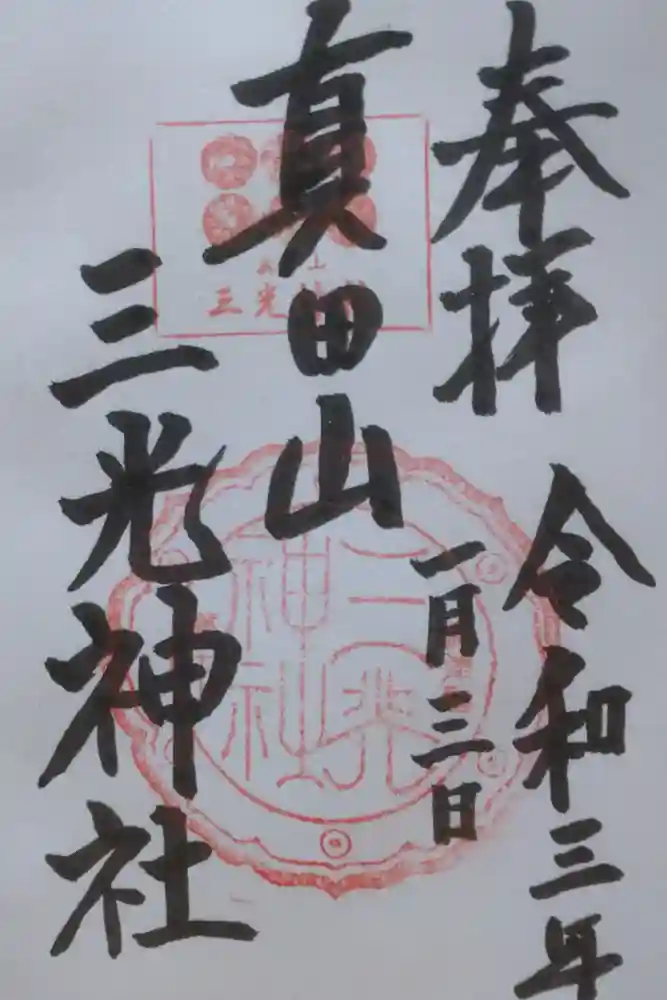 奉拝
令和三年
一月三日
真田山
三光神社
三光神社